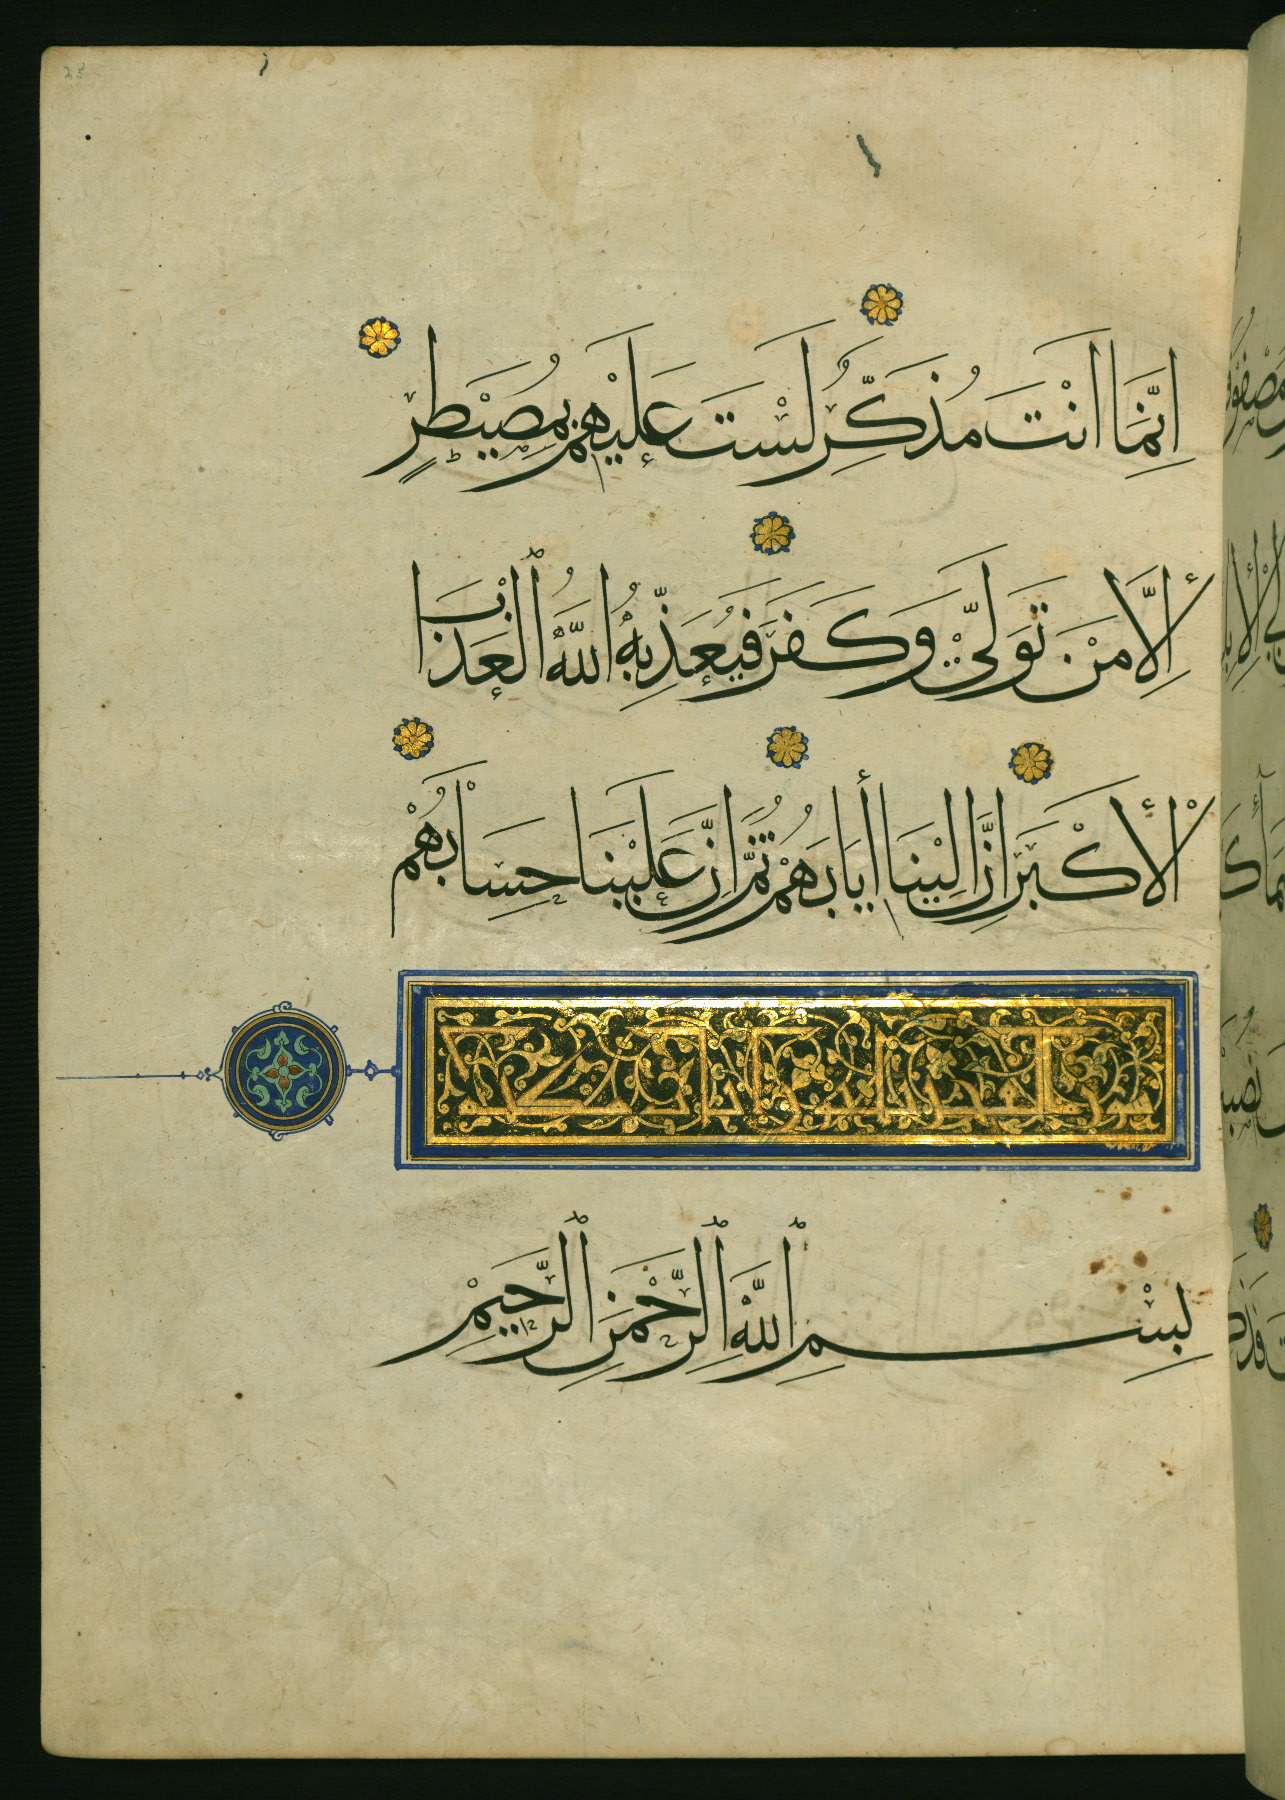 اِنَّمَا اَنْتَ مُذَكِّرٌ لَسْتَ عَلَيْهِمْ بِمُصَيْطِرٍ
اِلَّا مَنْ تَوَلّٰي وَكَفَرَ فَيُعَذِّبُهُ اللّٰهُ الْعَذَابَ
الْاَكْبَرَ اِنَّ اِلَيْنَا اِيَابَهُمْ ثُمَّ اِنَّ عَلَيْنَا حِسَابَهُمْ
بِسْمِ اللّٰهِ الرَّحْمٰنِ الرَّحِيمِ